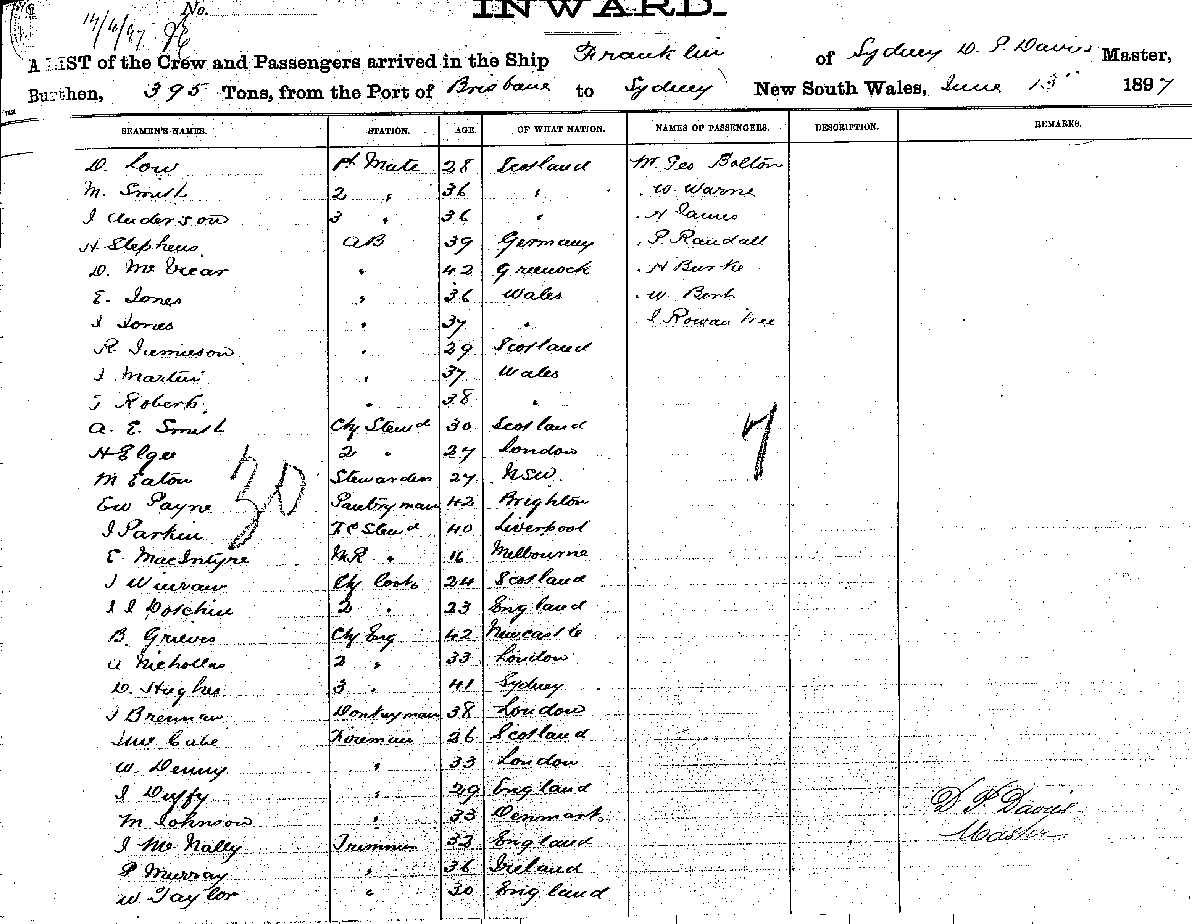 INWARD.
No.
14/6/97
A LIST of the Crew and Passengers arrived in the Ship Franklin of Sydney D. P. Davies Master,
Burthen, 395 Tons, from the Port of Brisbane to Sydney New South Wales, June 13th 1897
SEAMEN'S NAMES. STATION. AGE. OF WHAT NATION. NAMES OF PASSENGERS. DESCRIPTION. REMARKS.
D. Low 1st Mate 28 Scotland Mr Geo Bolton
M. Smith 2 " 36 " " W. Warne
J Anderson 3 " 36 " " H James
H Stephens AB 39 Germany " P. Randall
D. McVicar " 42 Greenock " H Burke
E. Jones " 36 Wales " W. Bent
J Jones " 37 " J Rowan tree
R. Jamieson " 29 Scotland
J Martin " 37 Wales
T Roberts " 38 "
A. E. Smith Chf Stewd 30 Scotland
H Elgee 2 " 27 London
M Eaton Stewardess 27 NSW
EW Payne Pantryman 42 Brighton
J Parkin F.C Stewd 40 Liverpool
E. MacIntyre M.R " 16 Melbourne
J Winram Chf Cook 24 Scotland
J J Dotchin 2 " 23 England
B. Grieves Chf Eng 42 Newcastle
A Nichollas 2 " 33 London
D. Hughes 3 " 41 Sydney
J Brennan Donkeyman 38 London
McCabe Fireman 26 Scotland
W. Denny " 33 London
J Duffy " 29 England
M Johnson " 33 Denmark
J McNally Trimmer 33 England
P Murray " 36 Ireland
W. Taylor " 30 England
30
7
D P Davies
Master